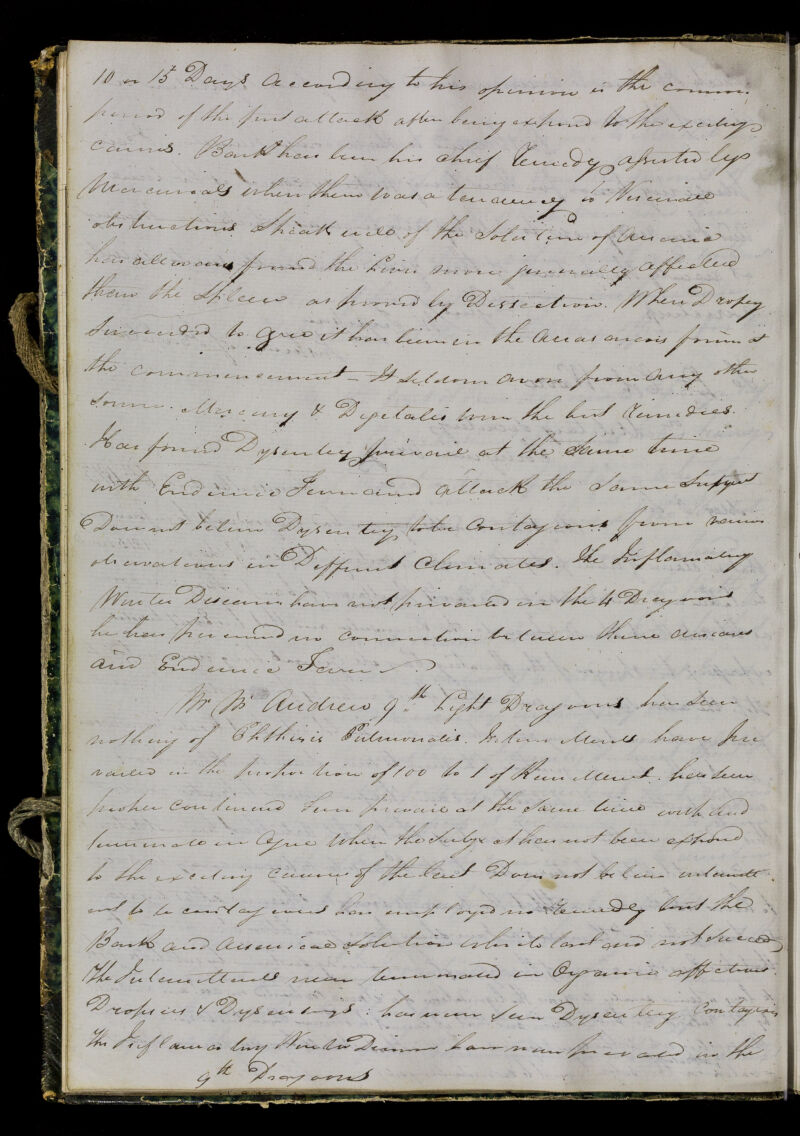 10 or 15 Days According to his opinion is the common
period of the first attack after being exposed to the exciting
causes. Bark has been his chief remedy assisted by
Mercurials when there was a tendency to Visceral
obstructions of the Solution of Arsenic
has always found the Liver more generally affected
than the Spleen as proved by Dissection. When Dropsy
Succeeded to Ague it has been in the Anasarcous form at
the commencement – It seldom arose from any other
source. Mercury & Digitalis were the best remedies.
Has found Dysentery prevail at the same time
with Endemic Fever and attack the same Subject
Does not believe Dysentery to be Contagious from various
observations in Different Climates. The Inflammatory
Winter Diseases have not prevailed in the 4 Dragoons
he has perceived no connection between these diseases
and Endemic Fever
Mr Mc Andrew 9th Light Dragoons has seen
nothing of Phthisis Pulmonalis. Intermittents have pre
vailed in the proportion of 100 to 1 of Remittent. has seen
proper continued Fever prevail at the same time with and
terminate in Ague when the Subject has not been exposed
to the exciting causes of the last Does not believe intermitt
ent to be contagious has employed no remedy but the
Bark and Arsenical Solution the last did not succeed
The Intermittents never terminated in Organic affections
Dropsies & Dysenteries: has never seen Dysentery Contagious
The Inflammatory Winter Diseases have never prevailed in the
9th Dragoons